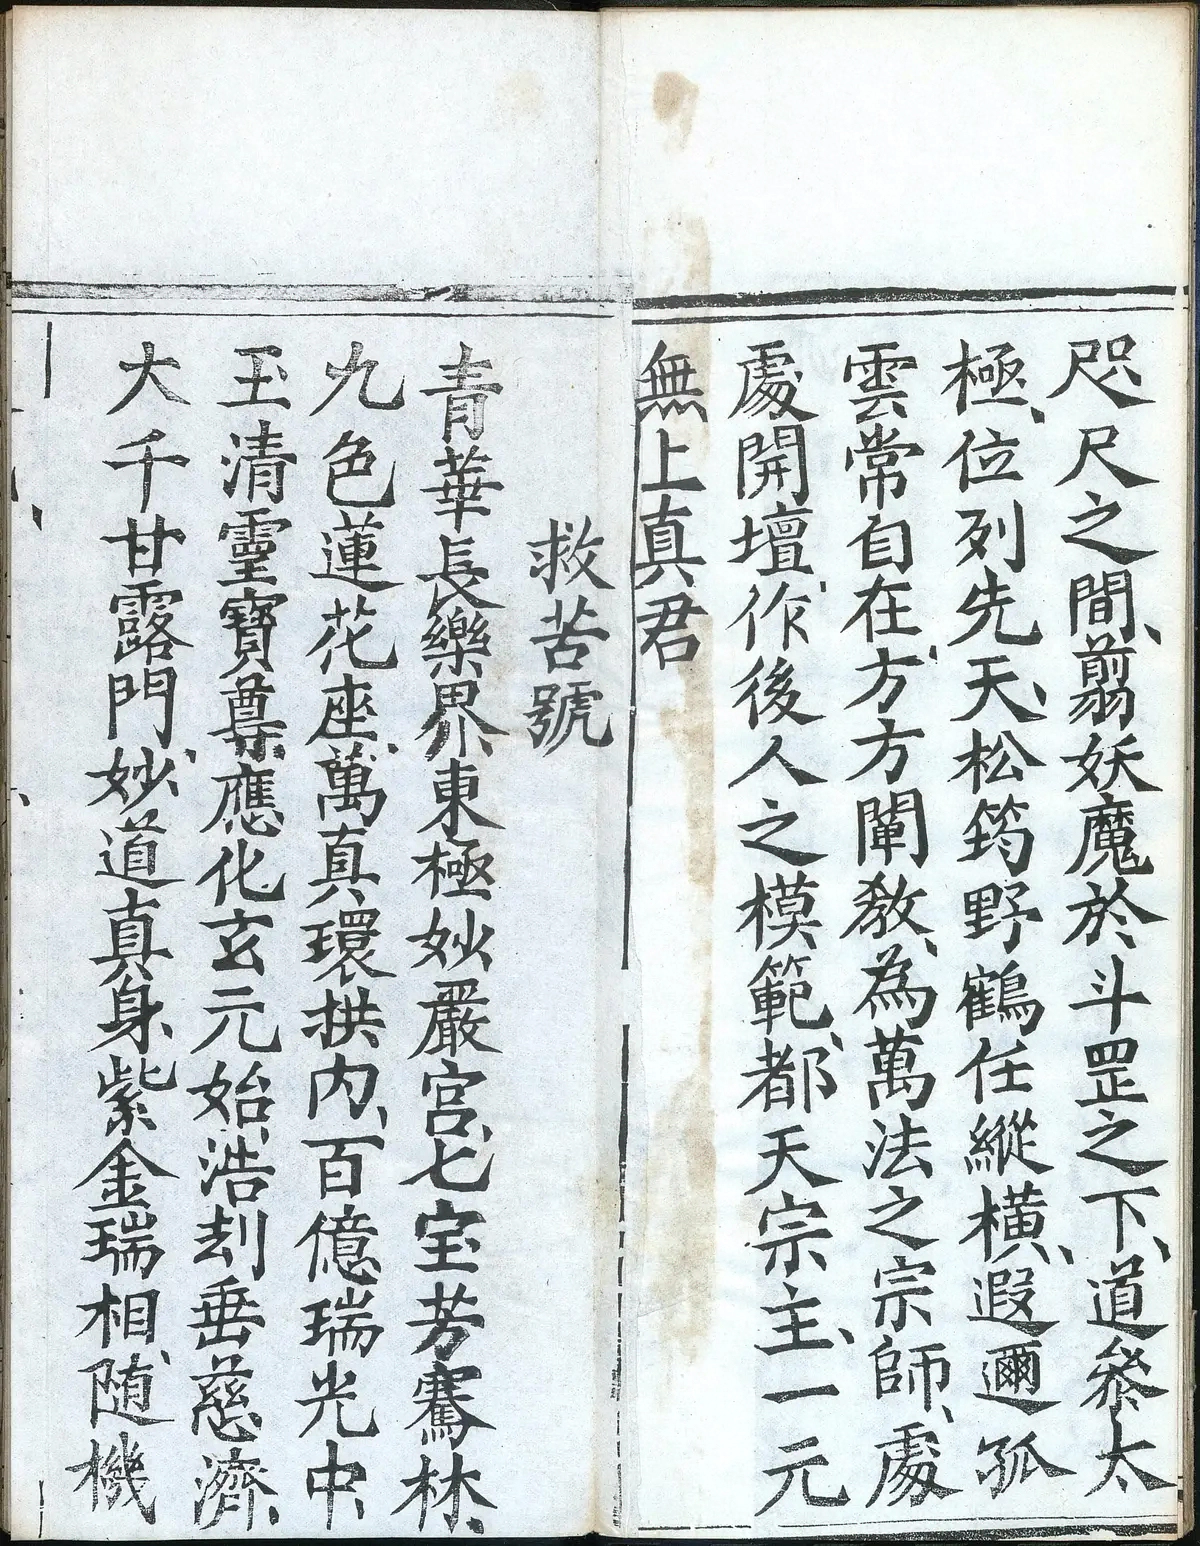 咫尺之間、翦妖魔於斗罡之下、道叅太
極、位列先天、松筠野鶴任縱橫、遐邇孤
雲常自在、方方闡教、為萬法之宗師、處
處開壇、作後人之模範、都天宗主、一元
無上真君
救苦號
青華長樂界、東極妙嚴宮、七宝芳騫林、
九色蓮花座、萬真環拱内、百億瑞光中、
玉清靈寶尊、應化玄元始、浩刼垂慈濟、
大千甘露門、妙道真身、紫金瑞相、随機